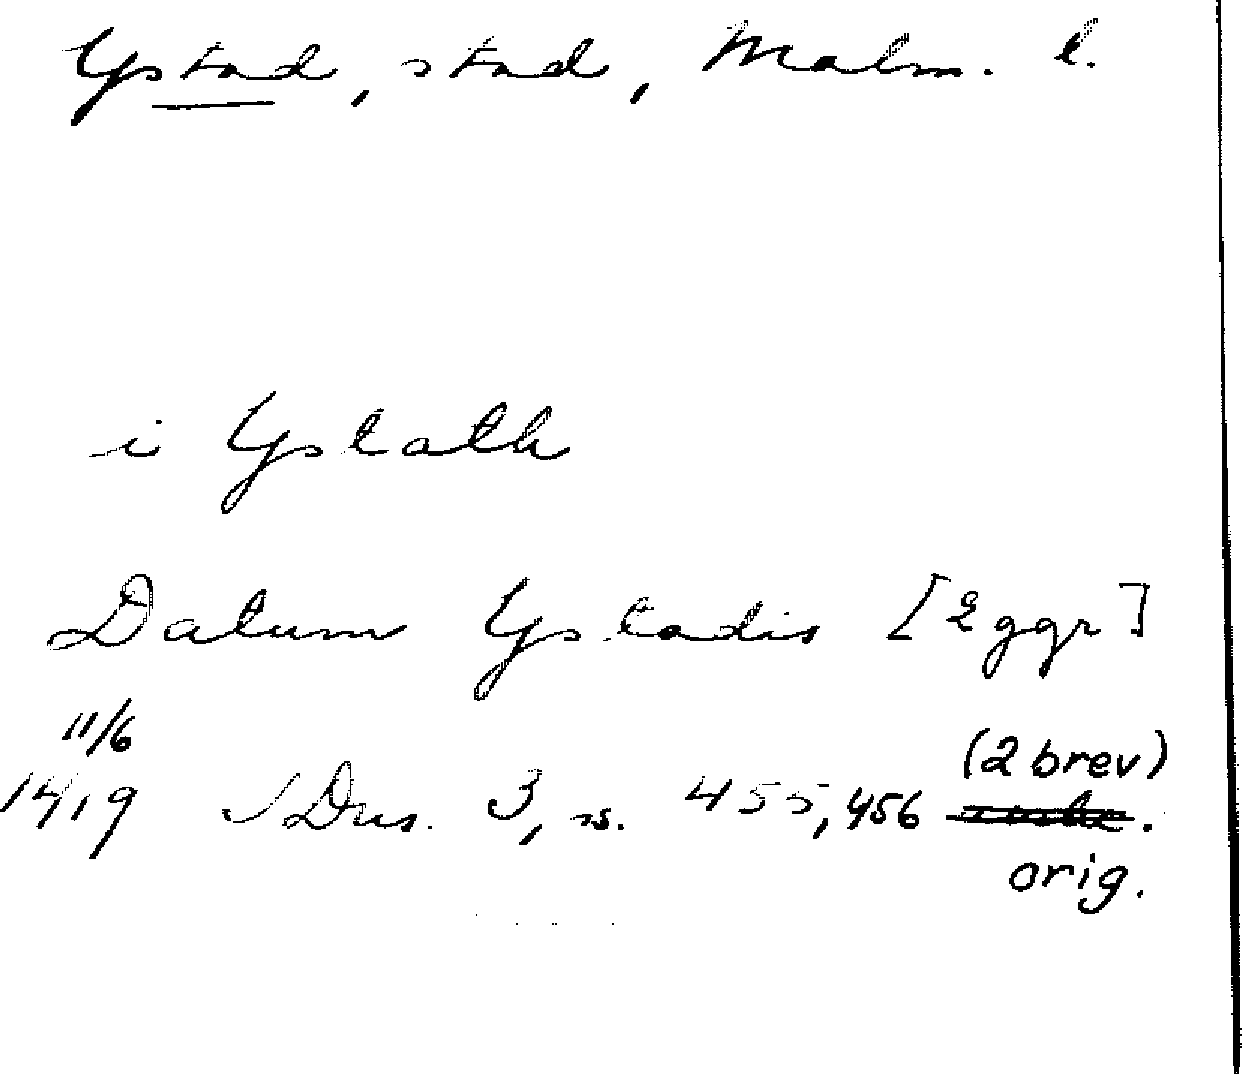 Ystad, stad, Malm. l.
i Ystath
Datum Ystadis [2 ggr]
11/6
(2 brev)
1419 √ Dns. 3, s. 455, 456 .
orig.